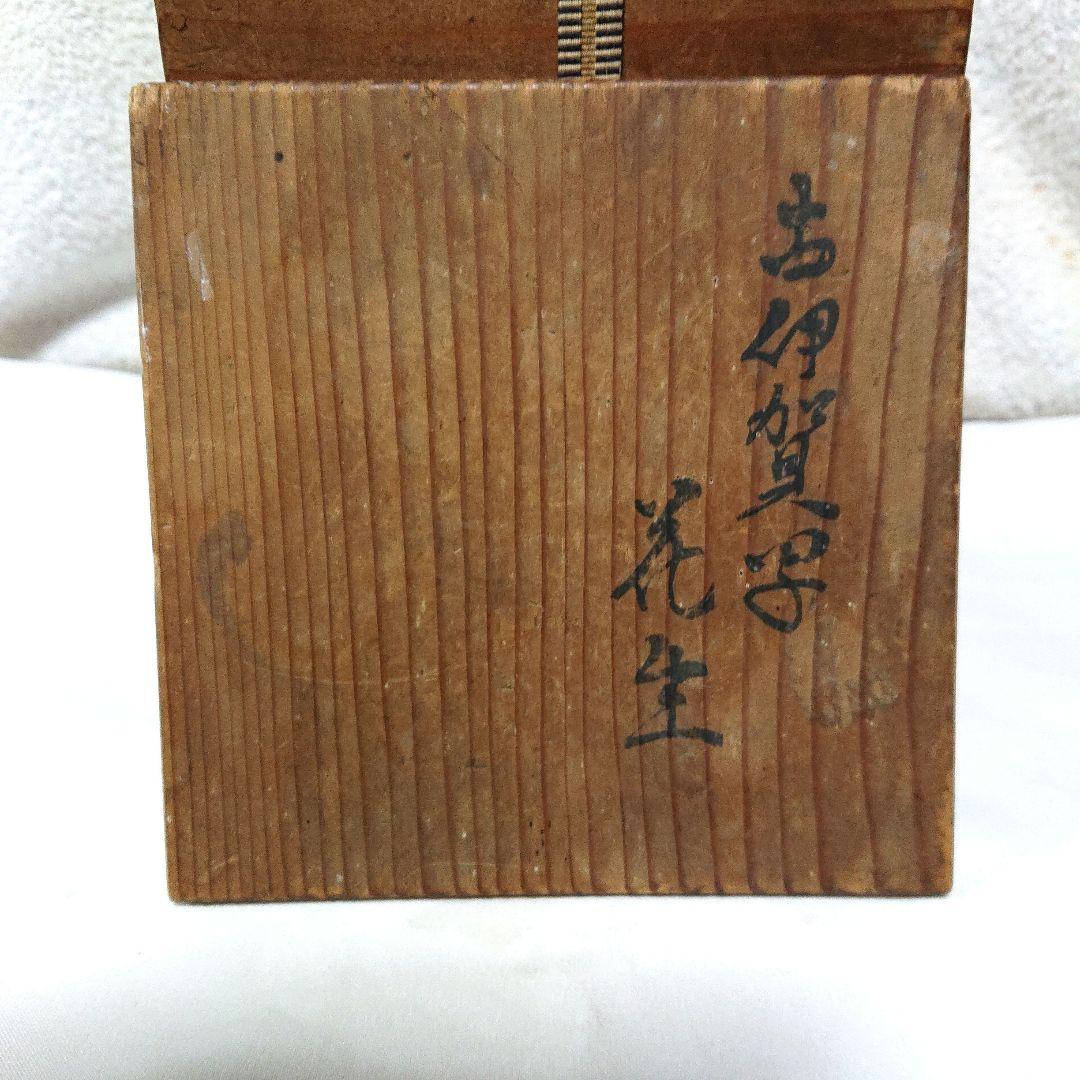 古伊賀写
花生